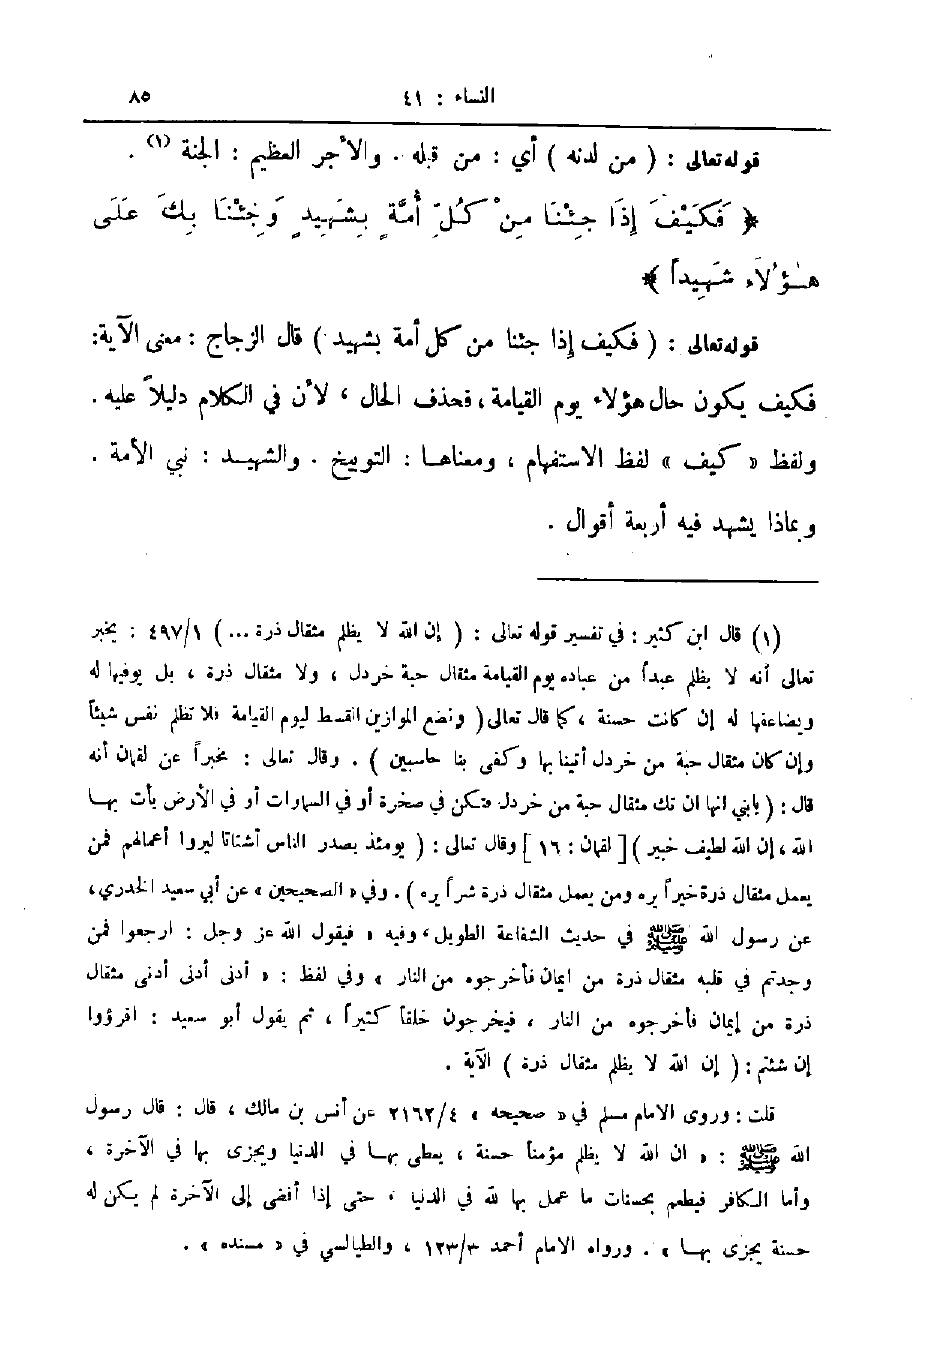 النساء : ٤١ ٨٥
قوله تعالى : ( من لدنه ) أي : من قبله . والأجر العظيم : الجنة (١) .
﴿ فَكَيْفَ إِذَا جِئْنَا مِنْ كُلِّ أُمَّةٍ بِشَهِيدٍ وَجِئْنَا بِكَ عَلَى
هٰؤُلَاءِ شَهِيداً ﴾
قوله تعالى : ( فكيف إذا جئنا من كل أمة بشهيد ) قال الزجاج : معنى الآية :
فكيف يكون حال هؤلاء يوم القيامة ، فحذف الحال ، لأن في الكلام دليلاً عليه .
ولفظ « كيف » لفظ الاستفهام ، ومعناها : التوبيخ . والشهيد : نبي الأمة .
وبماذا يشهد فيه أربعة أقوال .
(١) قال ابن كثير : في تفسير قوله تعالى : ( إن الله لا يظلم مثقال ذرة ... ) ٤٩٧/١ : يخبر
تعالى أنه لا يظلم عبداً من عباده يوم القيامة مثقال حبة خردل ، ولا مثقال ذرة ، بل يوفيها له
ويضاعفها له إن كانت حسنة ، كما قال تعالى ( ونضع الموازين القسط ليوم القيامة فلا تظلم نفس شيئاً
وإن كان مثقال حبة من خردل أتينا بها وكفى بنا حاسبين ) . وقال تعالى : مخبراً عن لقمان أنه
قال : ( يابني انها ان تك مثقال حبة من خردل فتكن في صخرة أو في السماوات أو في الأرض يأت بها
الله ، إن الله لطيف خبير ) [ لقمان : ١٦ ] وقال تعالى : ( يومئذ يصدر الناس أشتاتا ليروا أعمالهم فمن
يعمل مثقال ذرة خيراً يره ومن يعمل مثقال ذرة شراً يره ) . وفي « الصحيحين » عن أبي سعيد الخدري ،
عن رسول الله ﷺ في حديث الشفاعة الطويل ، وفيه « فيقول الله عز وجل : ارجعوا فمن
وجدتم في قلبه مثقال ذرة من ايمان فأخرجوه من النار » وفي لفظ : « أدنى أدنى أدنى مثقال
ذرة من إيمان فأخرجوه من النار ، فيخرجون خلقاً كثيراً ، ثم يقول أبو سعيد : اقرؤوا
إن شئتم : ( إن الله لا يظلم مثقال ذرة ) الآية .
قلت : وروى الامام مسلم في « صحيحه » ٢١٦٢/٤ عن أنس بن مالك ، قال : قال رسول
الله ﷺ : « ان الله لا يظلم مؤمناً حسنة ، يعطى بها في الدنيا ويجزى بها في الآخرة ،
وأما الكافر فيطعم بحسنات ما عمل بها لله في الدنيا ، حتى إذا أفضى إلى الآخرة لم يكن له
حسنة يجزى بها » . ورواه الامام أحمد ١٢٣/٣ ، والطيالسي في « مسنده » .